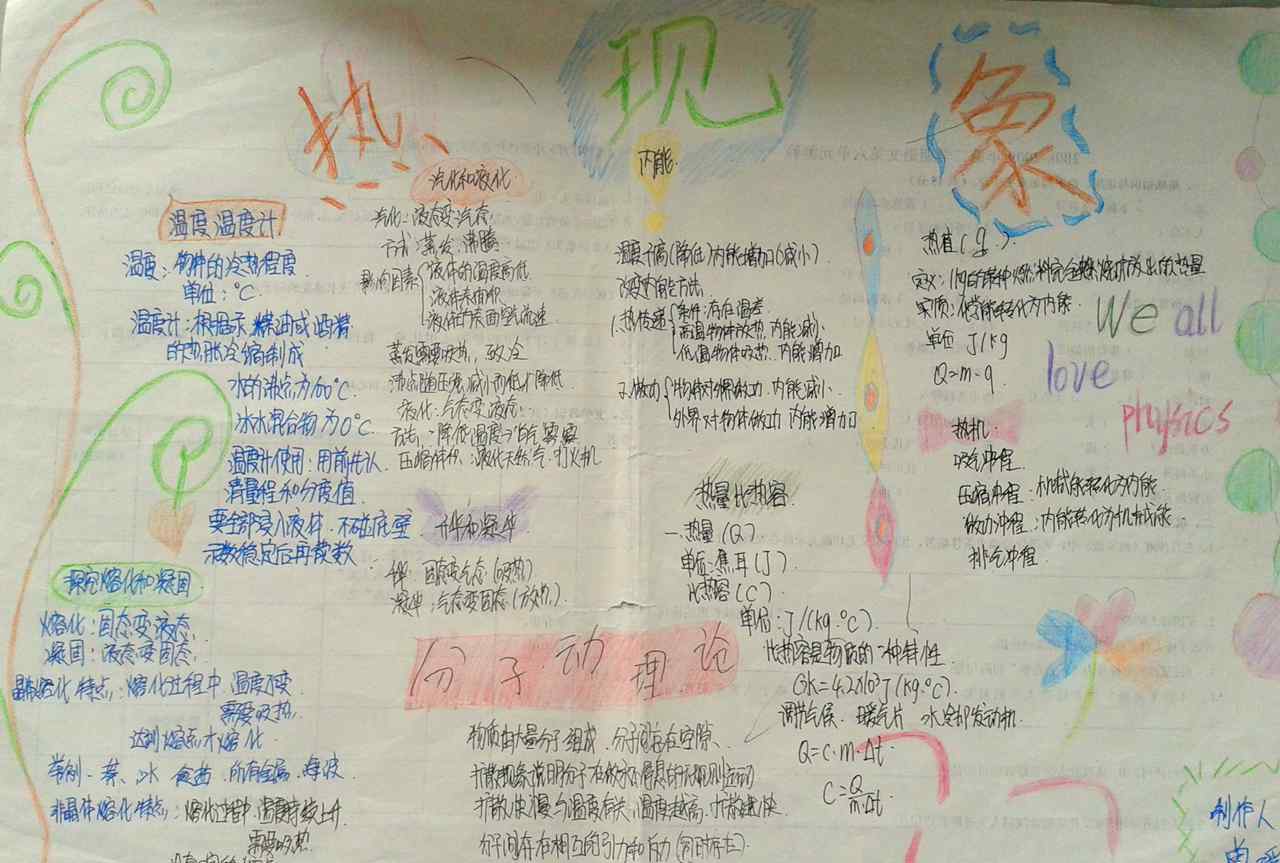 热现象
温度 温度计
温度：物体的冷热程度
单位：℃
温度计：根据 煤油或酒精
的热胀冷缩制成
水的沸点为100℃
冰水混合物为0℃
温度计使用：用前先认
清量程和分度值
要全部浸入液体 不碰底壁
示数稳定后再读数
探究熔化和凝固
熔化：固态变液态
凝固：液态变固态
晶体熔化特点：熔化过程中 温度不变
需要吸热
达到熔点才熔化
举例：萘、冰 食盐 所有金属 海波
非晶体熔化特点：熔化过程中 温度持续上升
需要吸热
汽化和液化
汽化：液态变汽态
方式：蒸发 沸腾
影响因素 液体的温度高低
液体表面积
液体的表面空气流速
蒸发需要吸热，致冷
沸点随压强减小而降低
液化：气态变液态
方法：降低温度 雾
压缩体积：液化天然气 打火机
升华和凝华
升华 固态变气态（吸热）
凝华：气态变固态（放热）
分子动理论
物质由大量分子组成 分子间存在空隙
扩散现象说明分子在做永不停息的无规则运动
扩散快慢与温度有关，温度越高，扩散越快
分子间存在相互的引力和斥力（同时存在）
内能
温度升高（降低）内能增加（减小）
改变内能方法
1.热传递 条件：存在温差
高温物体放热 内能减小
低温物体吸热 内能增加
2.做功 物体对外界做功 内能减小
外界对物体做功 内能增加
热量比热容
一.热量（Q）
单位：焦耳（J）
比热容（C）
单位：J/(kg·℃)
比热容是物质的一种特性
=4.2×10³J/(kg·℃)
调节气候 暖气片 水冷却发动机
Q=c·m·Δt
C=Q/m·Δt
热值（q）
定义：1kg的某种燃料完全燃烧放出的热量
实质：化学能转化为内能
单位 J/kg
Q=m·q
热机
吸气冲程
压缩冲程：机械能转化为内能
做功冲程：内能转化为机械能
排气冲程
We all
love
physics
制作人